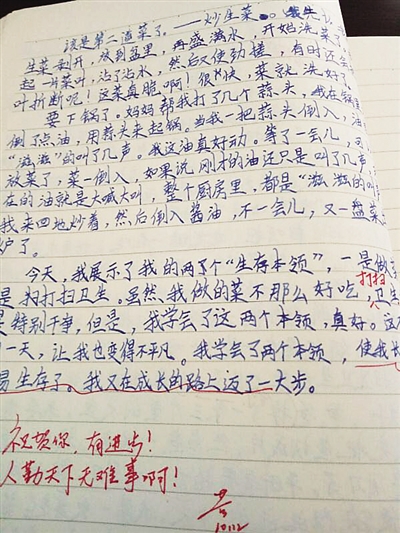 该是第二道菜了,——炒生菜。我先
生菜剥开,放到盆里,再盛满水,开始洗菜了
起一片菜叶,沾了沾水,然后又使劲搓,有时还会
叶折断呢!这菜真脆啊!很快,菜就洗好了
要下锅了。妈妈帮我打了几个蒜头,我在锅里
倒了点油,用蒜头来起锅。当我一把蒜头倒入,油
“滋滋”的叫了几声。我这油真好动。等了一会儿,可
放菜了,菜一倒入,如果说刚才的油还只是叫了几声,
在的油就是大喊大叫,整个厨房里,都是“滋滋的叫
我来回地炒着,然后倒入酱油,不一会儿,又一盘菜
炉了。
今天,我展示了我的两个“生存本领”,一是做
是打扫卫生。虽然我做的菜不那么好吃,打扫卫生
是特别干净,但是,我学会了这两个本领,真好。这
一天,让我也变得不平凡。我学会了两个本领,使我
易生存了。我又在成长的路上迈了一大步。
祝贺你,有进步!
人勤天下无难事啊!
10.12